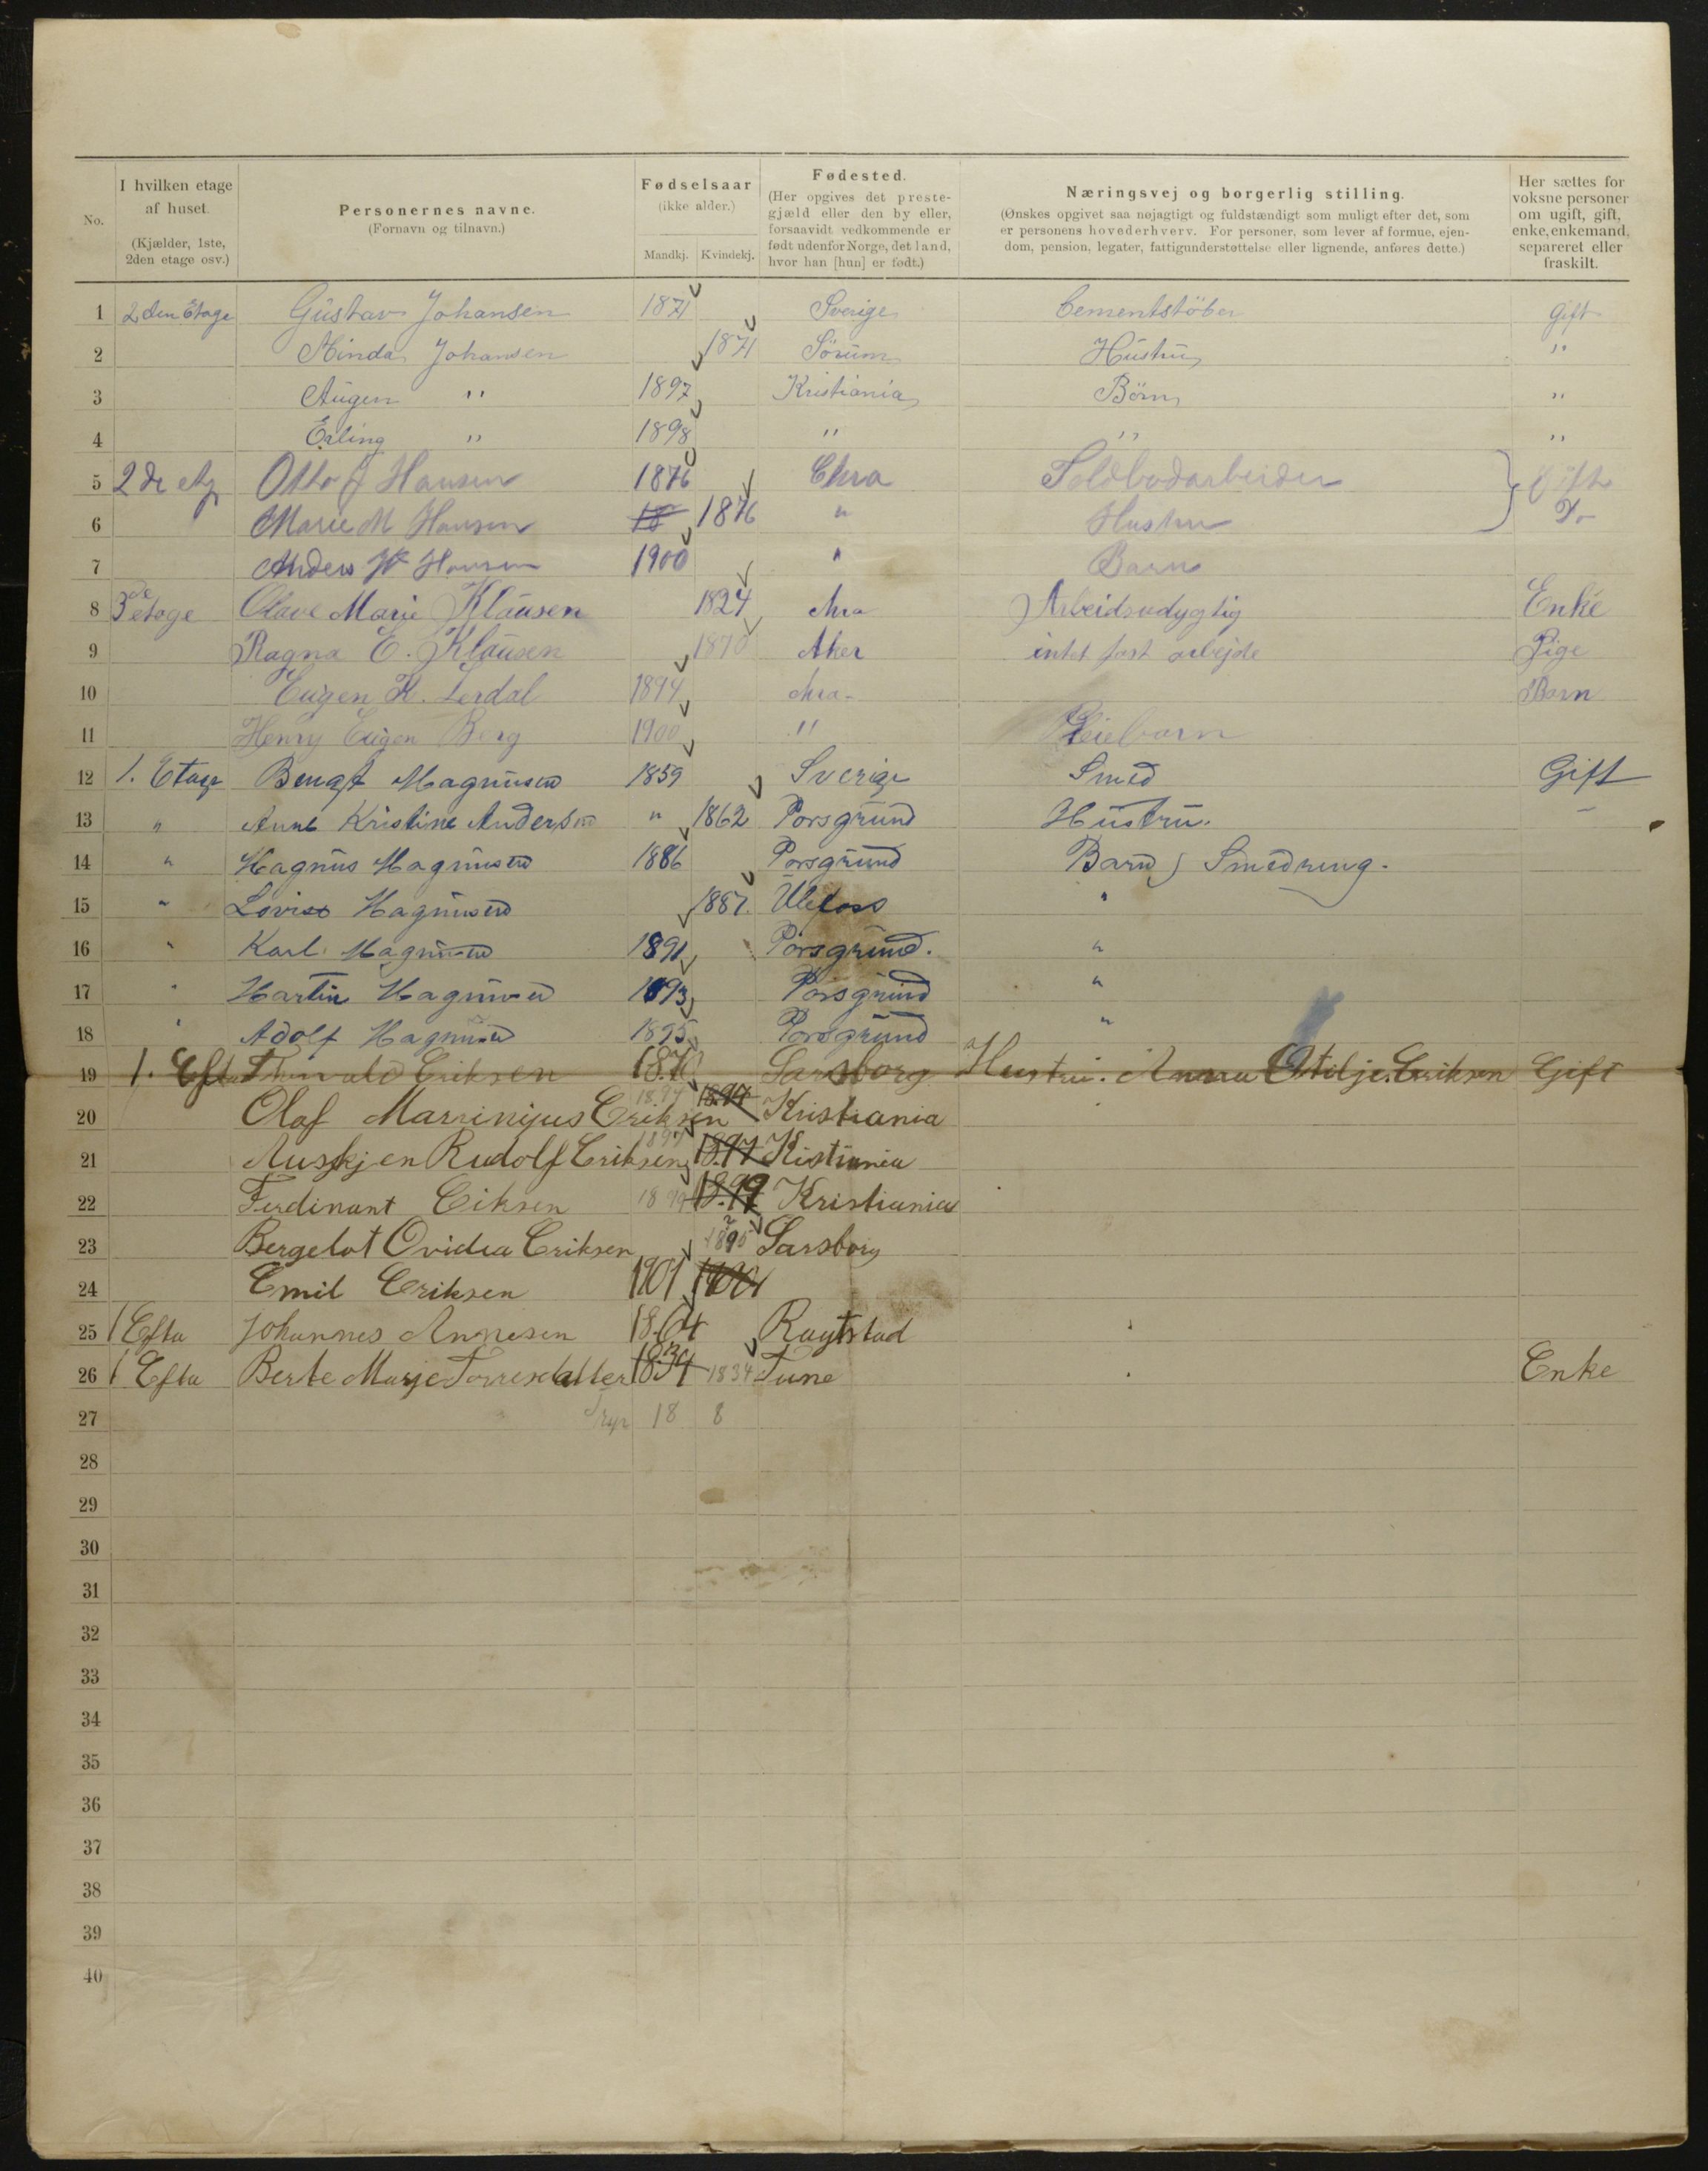 No. I hvilken etage af huset. (Kjælder, 1ste, 2den etage osv.) Personernes navne. (Fornavn og tilnavn.) Fødselsaar (ikke alder.) Mandkj. Kvindekj. Fødested. (Her opgives det prestegjæld eller den by eller, forsaavidt vedkommende er født udenfor Norge, det land, hvor han [hun] er født.) Næringsvej og borgerlig stilling. (Ønskes opgivet saa nøjagtigt og fuldstændigt som muligt efter det, som er personens hovederhverv. For personer, som lever af formue, ejendom, pension, legater, fattigunderstøttelse eller lignende, anføres dette.) Her sættes for voksne personer om ugift, gift, enke, enkemand, separeret eller fraskilt.
1 2den Etage Gustav Johansen 1871 Sverige Cementstöber Gift
2 Minda Johansen 1871 Sörum Hustru "
3 Augen " 1897 Kristiania Börn "
4 Erling " 1898 " " "
5 2de etg Otto J Hansen 1876 Chra Toldbodarbeider Gift
6 Marie M Hansen 18 1876 " Hustru Do
7 Anders Hansen 1900 " Barn
8 3de etage Olave Marie Klausen 1824 Chra Arbeidsudygtig Enke
9 Ragna E. Klausen 1870 Aker intet fast arbejde Pige
10 Eugen H. Lerdal 1894 Chra. Barn
11 Henry Eugen Berg 1900 " Pleiebarn
12 1. Etage Bengt Magnusen 1859 Sverige Smed Gift
13 " Anne Kristine Andersen " 1862 Porsgrund Hustru.
14 " Magnus Magnusen 1886 Porsgrund Barn Smedreng.
15 " Lovise Magnusen 1887. Ulefoss "
16 " Karl Magnusen 1891 Porsgrund. "
17 " Martin Magnusen 1893 Porsgrund "
18 " Adolf Magnusen 1895 Porsgrund "
19 1. Efta Thorvald Eriksen 18.70 Sarsborg Hustru. Anna Otilje. Eriksen Gift
20 Olaf Marinijus Eriksen 1894 18.94 Kristiania
21 Auskjen Rudolf Eriksen 1897 18.97 Kistiania
22 Ferdinant Eiksen 1899 18.99 Kristiania
23 Bergelot Ovidia Eriksen 1895 Sarsborg
24 Emil Eriksen 1901 1901
25 1 Efta Johannes Annesen 18.64 Raytstad
26 1 Efta Berte Marje Torresdatter 1834 1834 Tune Enke
27 18 8
28
29
30
31
32
33
34
35
36
37
38
39
40